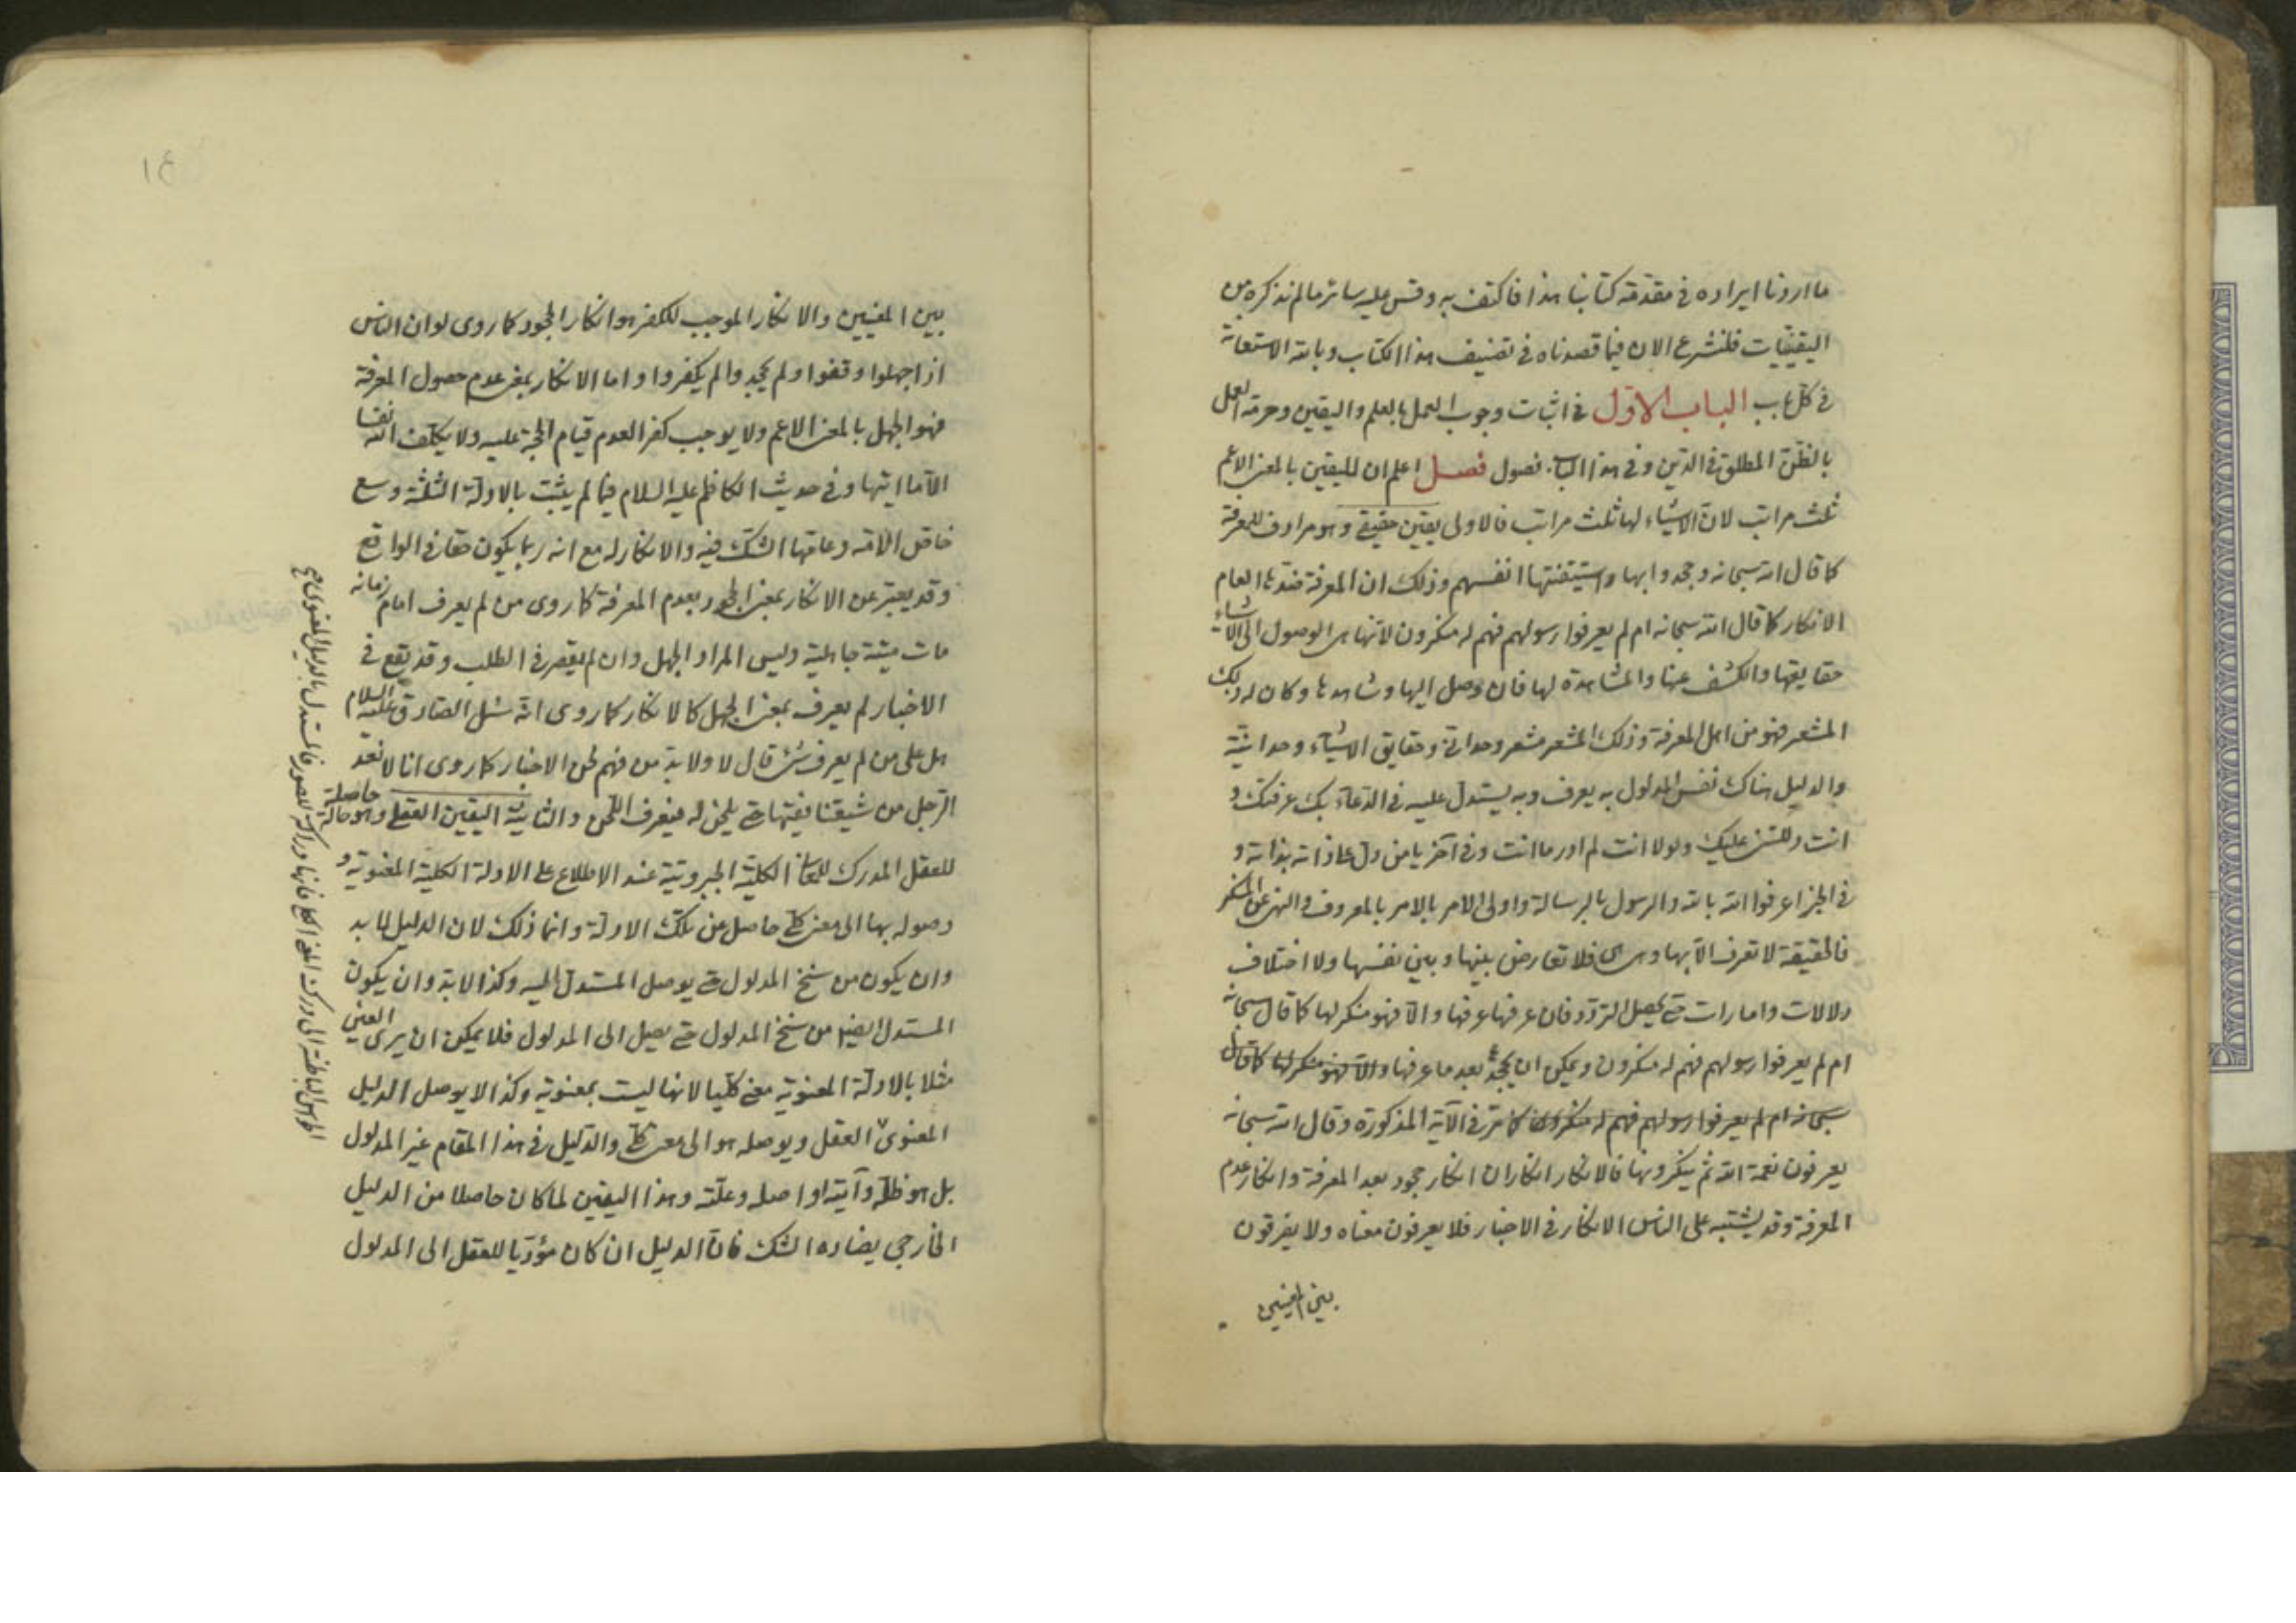 ما اردنا ايراده فى مقدمة كتابنا هذا فاكتف به وقس عليه سائر ما لم نذكره من
اليقينيات فلنشرع الان فيما قصدناه فى تصنيف هذا الكتاب وبالله الاستعانة
فى كل باب الباب الاول فى اثبات وجوب العمل بالعلم واليقين وحرمة العمل
بالظن المطلق فى الدين وفى هذا الباب فصول فصل اعلم ان لليقين بالمعنى الاعم
ثلث مراتب لان الاشياء لها ثلث مراتب فالاولى يقين حقيقى وهو مرادف للمعرفة
كما قال الله سبحانه وجحدوا بها واستيقنتها انفسهم وذلك ان المعرفة ضدها العام
الانكار كما قال الله سبحانه ام لم يعرفوا رسولهم فهم له منكرون لانها هى الوصول الى الاشياء
حقايقها والكشف عنها والمشاهدة لها فان وصل اليها وشاهدها وكان له ذلك
المشعر فهو من اهل المعرفة وذلك المشعر مشعر وحدانى وحقايق الاشياء وحدانية
والدليل هناك نفس المدلول به يعرف وبه يستدل عليه فى الدعاء بك عرفتك و
انت دللتنى عليك ولولا انت لم ادر ما انت وفى آخر يا من دل على ذاته بذاته و
فى الخبر اعرفوا الله بالله والرسول بالرسالة واولى الامر بالامر بالمعروف والنهى عن المنكر
فالحقيقة لا تعرف الا بها وهى هى فلا تعارض بينها وبين نفسها ولا اختلاف
دلالات وامارات حتى يحصل التردد فان عرفها عرفها والا فهو منكر لها كما قال سبحانه
ام لم يعرفوا رسولهم فهم له منكرون ويمكن ان يجحد بعد ما عرفها والا فهو منكر لها كما قال
سبحانه ام لم يعرفوا رسولهم فهم له منكرون كما مر فى الآية المذكورة وقال الله سبحانه
يعرفون نعمة الله ثم ينكرونها فالانكار انكاران انكار جحود بعد المعرفة وانكار عدم
المعرفة وقد يشتبه على الناس الانكار فى الاخبار فلا يعرفون معناه ولا يفرقون
بين المعنيين
بين المعنيين والانكار الموجب للكفر هو انكار الجحود كما روى لو ان الناس
اذا جهلوا وقفوا ولم يجحدوا لم يكفروا واما الانكار بمعنى عدم حصول المعرفة
فهو الجهل بالمعنى الاعم ولا يوجب كفرا لعدم قيام الحجة عليه ولا يكلف الله نفسا
الا ما اتيها وفى حديث الكاظم عليه السلام فيما لم يثبت بالادلة الثلثة وسع
خاص الامة وعامها الشك فيه والانكار له مع انه ربما يكون حقا فى الواقع
وقد يعبر عن الانكار بمعنى الجحود بعدم المعرفة كما روى من لم يعرف امام زمانه
مات ميتة جاهلية وليس المراد الجهل وان لم يقصر فى الطلب وقد يقع فى
الاخبار لم يعرف بمعنى الجهل كالانكار كما روى انه سئل الصادق عليه السلام
هل على من لم يعرف شىء قال لا ولا بد من فهم لحن الاخبار كما روى انا لا نعد
الرجل من شيعتنا فقيها حتى يلحن له فيعرف اللحن والثانية اليقين العقلى وهو حالة حاصلة
للعقل المدرك للمعانى الكلية الجبروتية عند الاطلاع على الادلة الكلية المعنوية و
وصوله بها الى معنى كلى حاصل من تلك الادلة وانما ذلك لان الدليل لا بد
وان يكون من سنخ المدلول حتى يوصل المستدل اليه وكذا لا بد وان يكون
المستدل ايضا من سنخ المدلول حتى يصل الى المدلول فلا يمكن ان يرى العين
مثلا بالادلة المعنوية معنى كليا لانها ليست بمعنوية وكذا لا يوصل الدليل
المعنوى العقل ويوصله هو الى معنى كلى والدليل فى هذا المقام غير المدلول
بل هو ظله وآيته او اصله وعلته وهذا اليقين لما كان حاصلا من الدليل
الخارجى يضاده الشك فان الدليل ان كان مؤديا للعقل الى المدلول
31